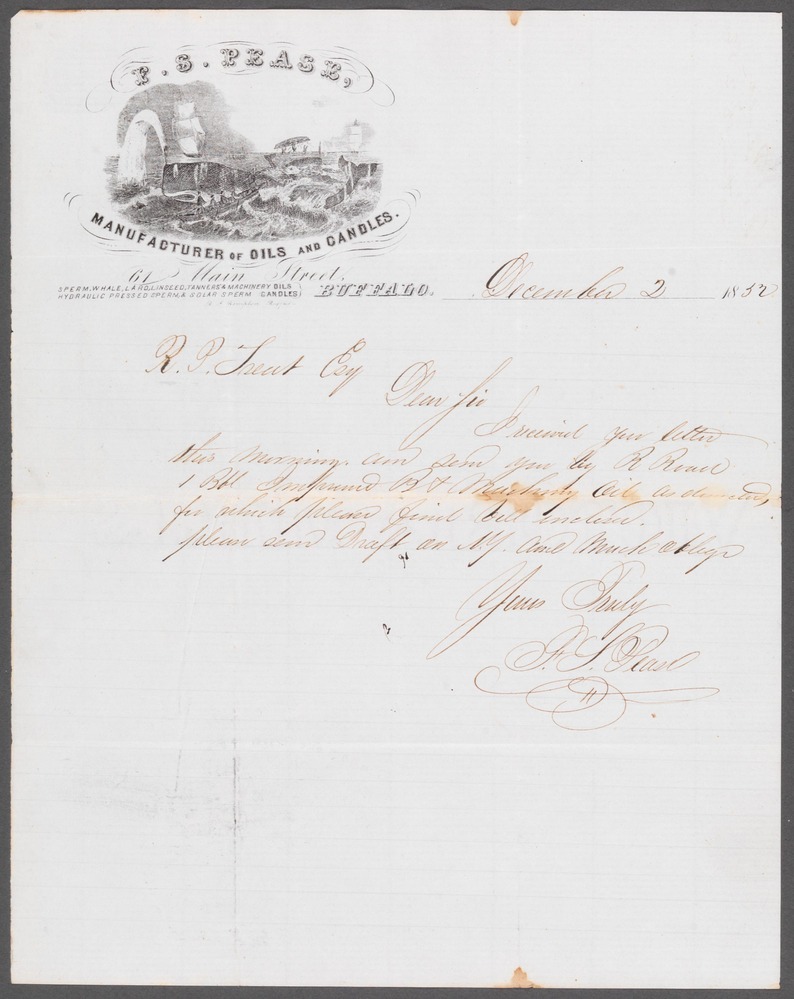 F. S. PEASE,
MANUFACTURER OF OILS AND CANDLES.
61 Main Street,
SPERM, WHALE, LARD, LINSEED, TANNERS & MACHINERY OILS
HYDRAULIC PRESSED SPERM, & SOLAR SPERM CANDLES
BUFFALO, December 2 1852
R. P. Esq
Dear Sir
I received your letter
this morning. and send you by R Road
1 Bbl Improved B & Machinery Oil as
for which please find bill enclosed.
please send Draft on N.Y. and Much oblige
Yours Truly
F. S. Pease